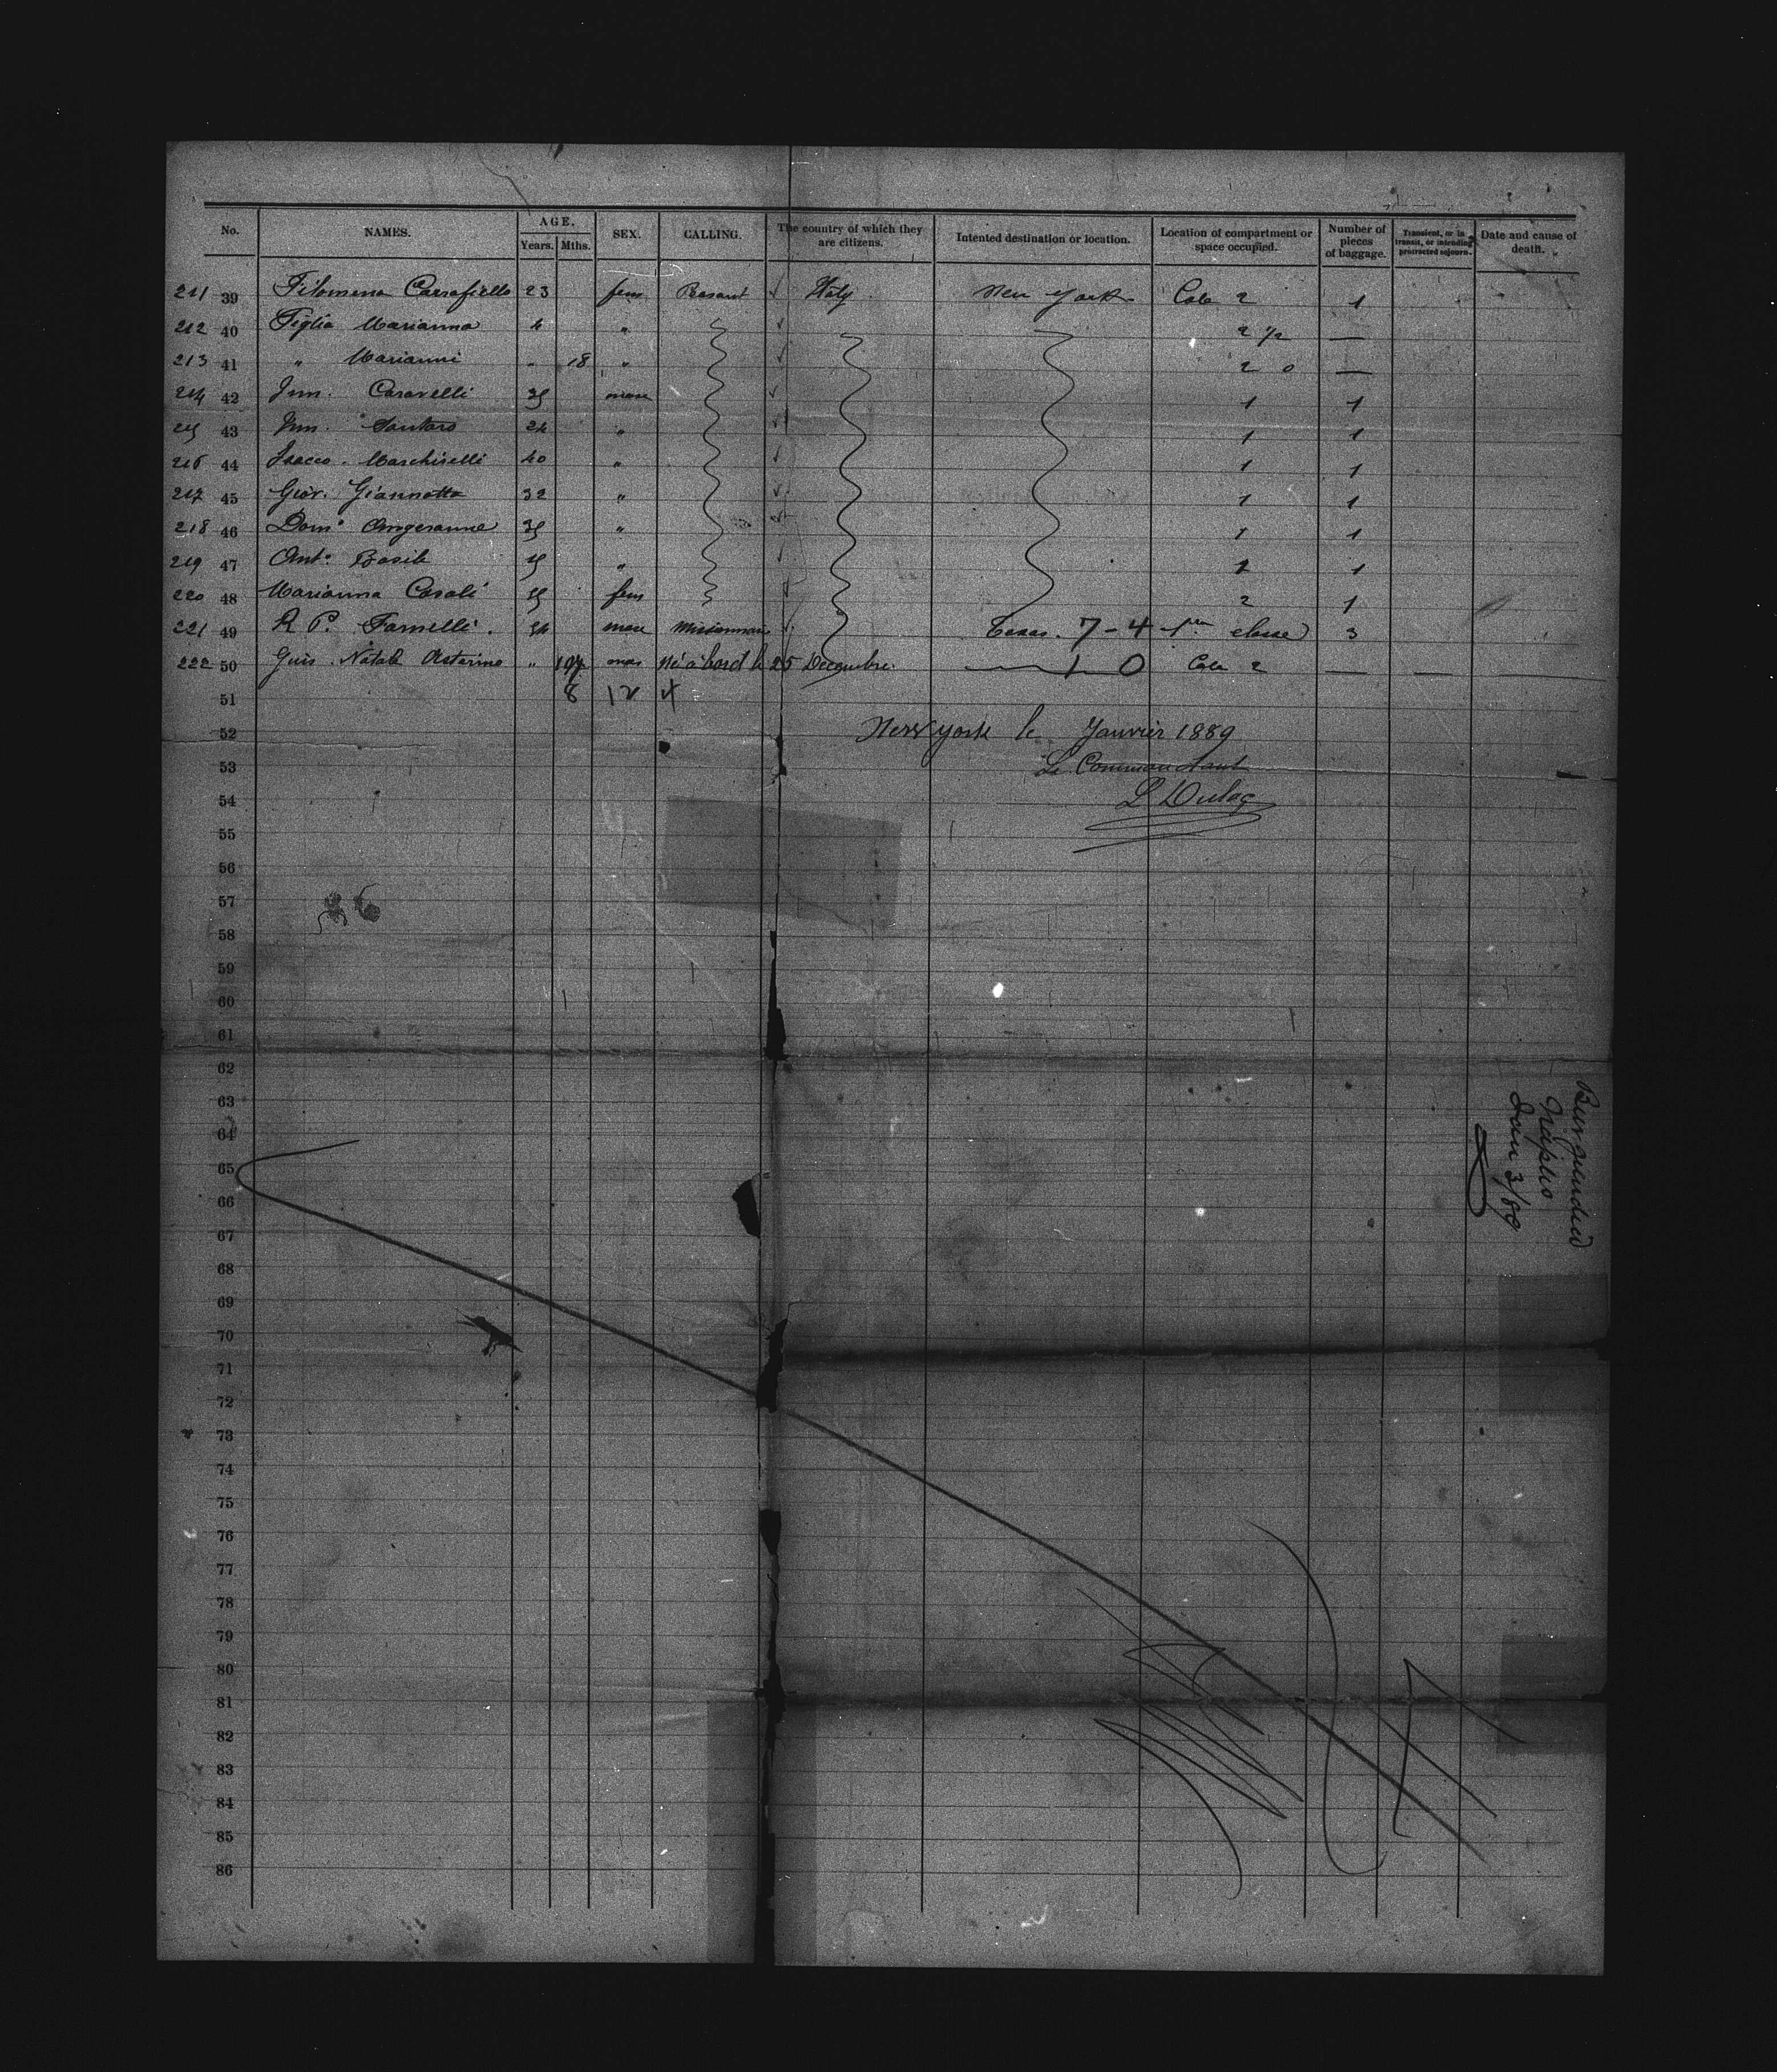 No. NAMES. AGE. Years. Mths. SEX. CALLING. The country of which they are citizens. Intented destination or location. Location of compartment or space occupied. Number of pieces of baggage. Transient, or in transit, or intending protracted sojourn. Date and cause of death.
211 39 Filomena Carrafiello 23 fem Peasant Italy New York Cale 2 1
212 40 Figlia Marianna 4 " 2 1/2 —
213 41 " Marianni " 18 " 2 0 —
214 42 Caravelli 35 masc 1 1
215 43 Santoro 24 " 1 1
216 44 Isacco Marchiselli 40 " 1 1
217 45 Giov. Giannotta 32 " 1 1
218 46 Domo 35 " 1 1
219 47 Anto Basile " 1 1
220 48 Marianna Casali fem 2 1
221 49 R. P. Farnelli. 34 masc Missionnaire Texas. 7-4 1re classe 3
222 50 Natale " masc né à bord le 25 Decembre 1 0 Cale 2 — —
51 8 12 4
52 New York le Janvier 1889
53 Le Commandant
54 L Dulac
55
56
57
58
59
60
61
62
63
64
65
66
67
68
69
70
71
72
73
74
75
76
77
78
79
80
81
82
83
84
85
86
Burgundia
Naples
Jan 3/89